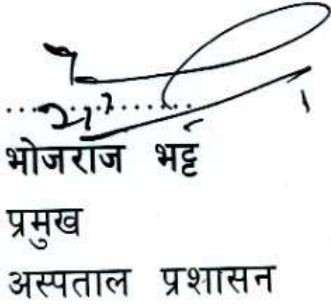 भोजराज भट्ट
प्रमुख
अस्पताल प्रशासन